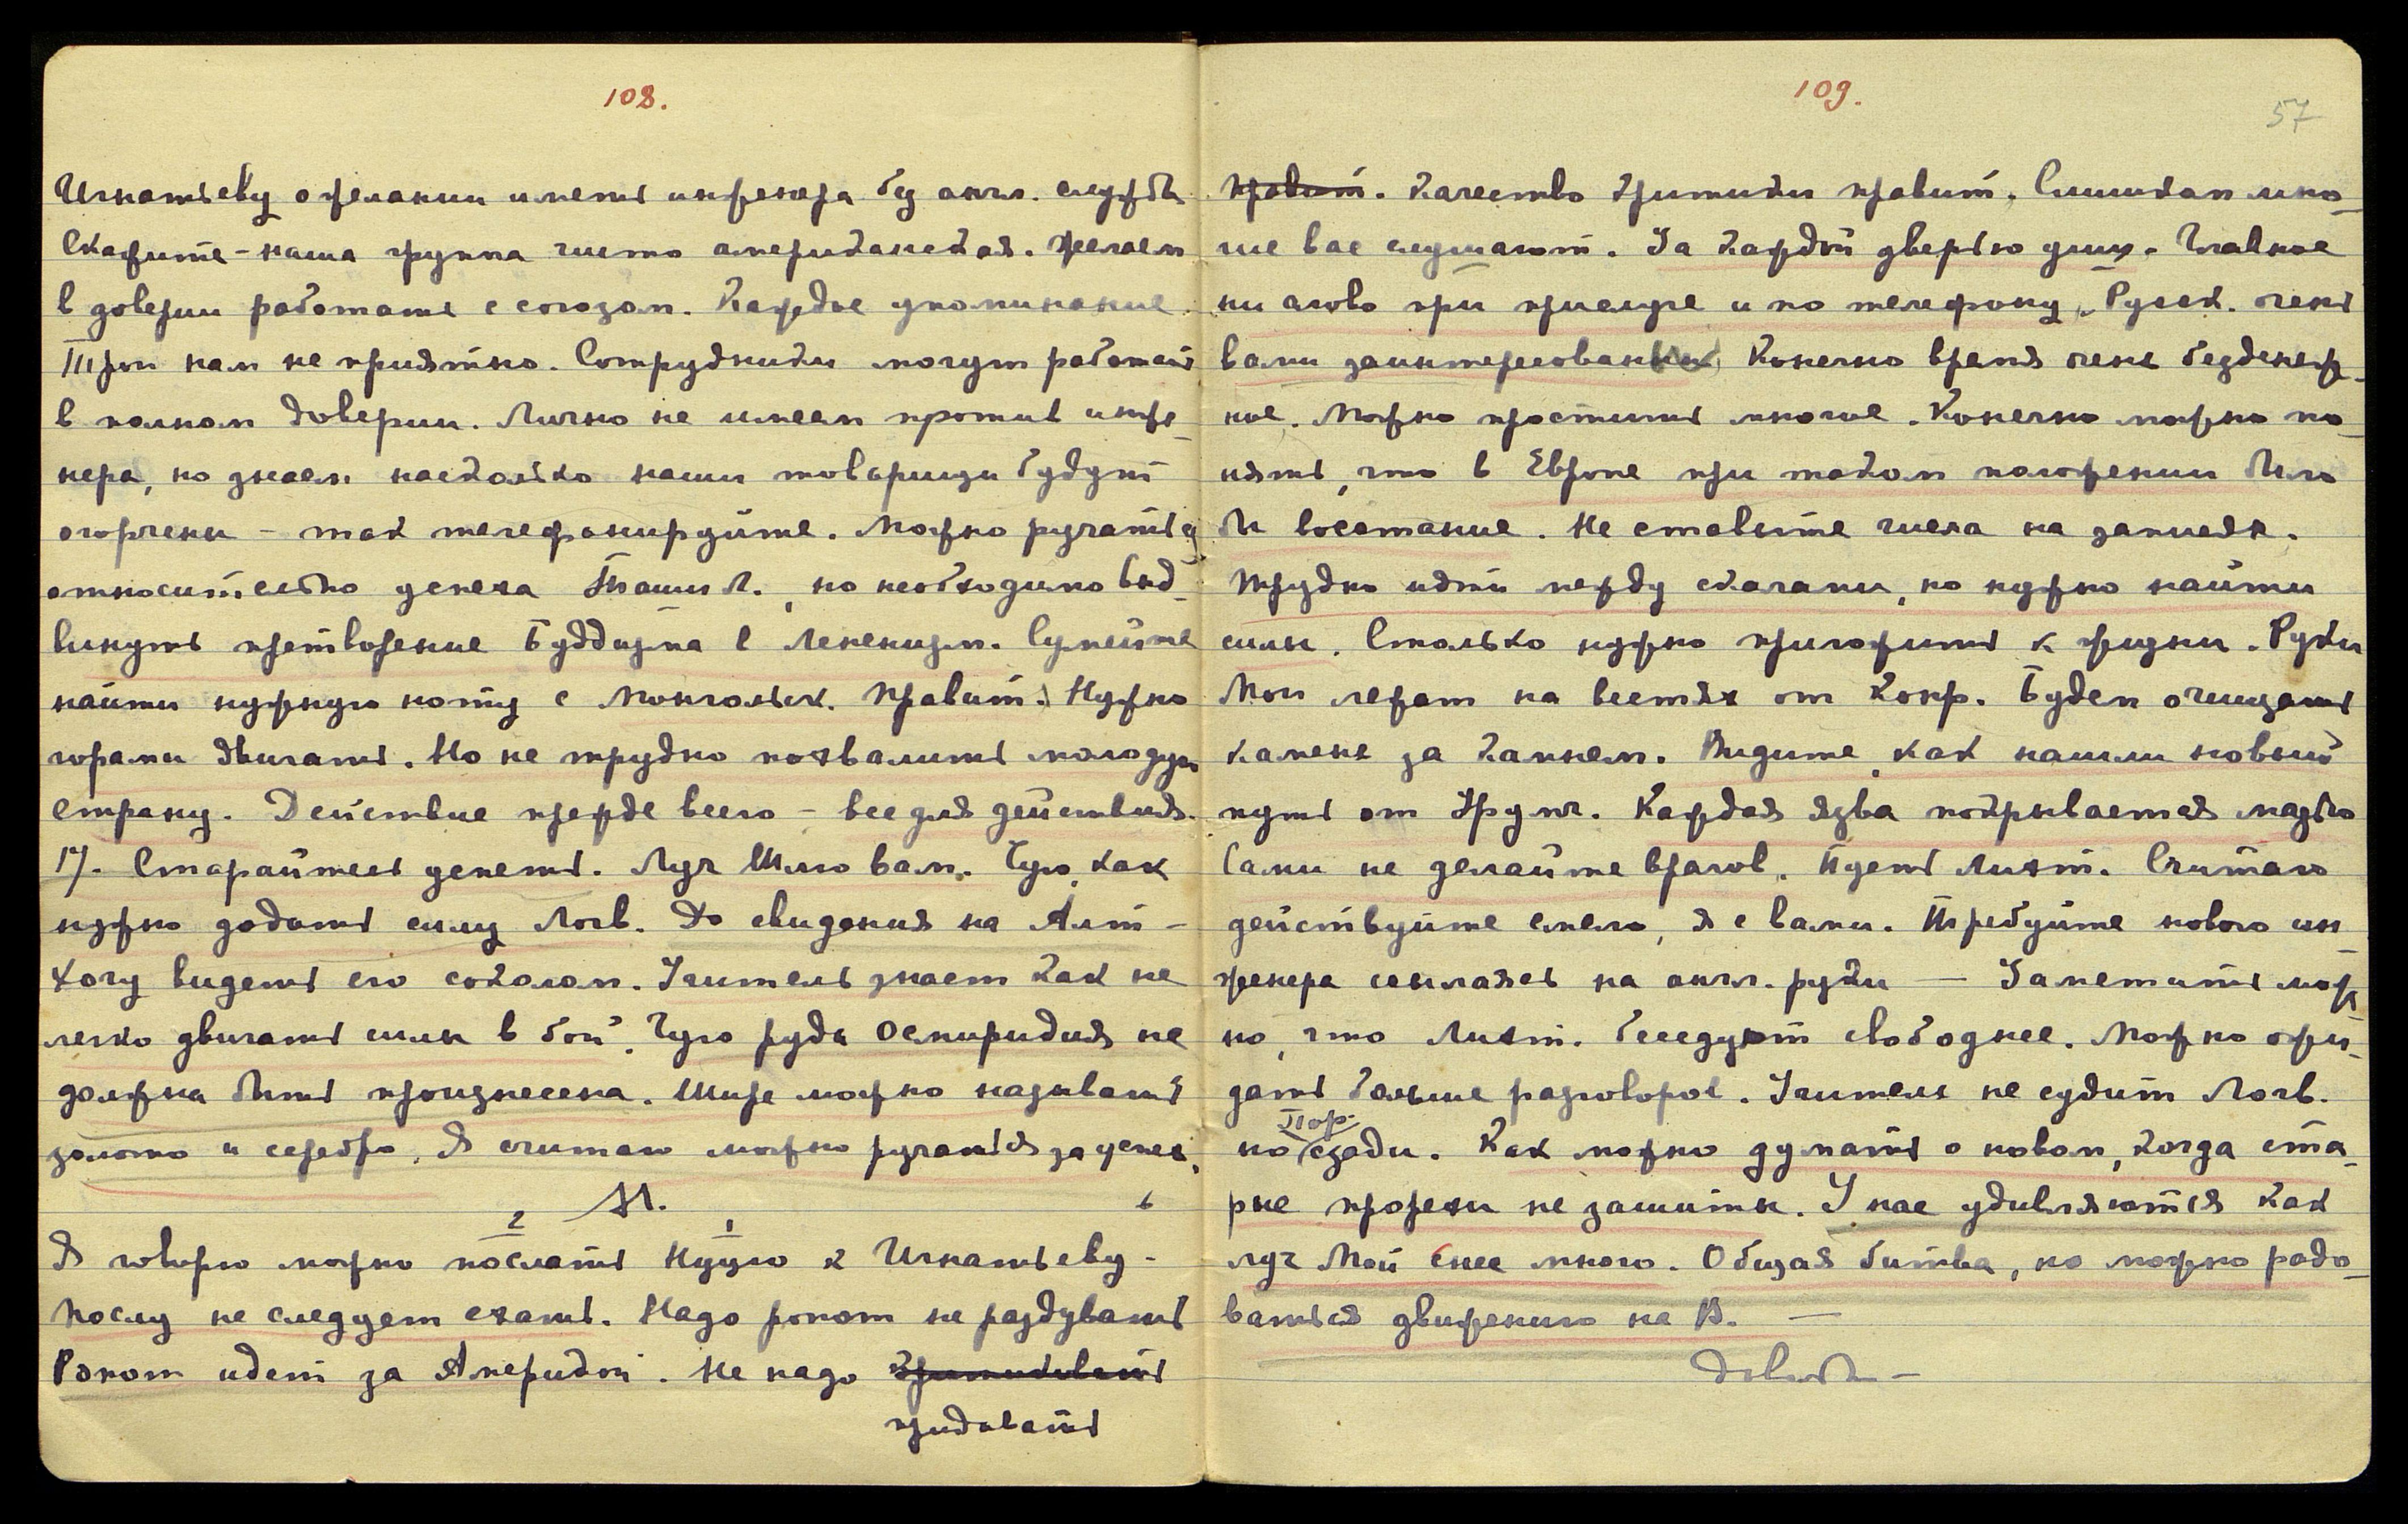 108.
Игнатьеву о желании иметь инженера без англ. службы
Скажите – наша группа чисто американская. Желаем
в доверии работать с союзом. Каждое упоминание
нам не приятно. Сотрудники могут работать
в полном доверии. Лично не имеем против инже-
нера, но знаем насколько наши товарищи будут
огорчены – так телефонируйте. Можно ручаться
относительно успеха Таши Л., но необходимо выд-
винуть претворение Буддизма в Ленинизм. Сумейте
найти нужную ноту с Монгольск. правит. Нужно
горами двигать. Но не трудно похвалить молодую
страну. Действие прежде всего – все для действия.
17. Старайтесь успеть. Луч Шлю вам. Чую, как
нужно додать силу Логв. До свидания на Алт –
хочу видеть его соколом. Учитель знает как не
легко двигать силы в бой. Чую руда Осмиридия не
должна быть произнесена. Шире можно называть
золото и серебро. Я считаю можно ручаться за успех.
М.
2 1
Я говорю можно послать Нуцю к Игнатьеву –
Послу не следует ехать. Надо ропот не раздувать
Ропот идет за Америкой. Не надо критиковать
придавать
109.
57
правит. Качество критики правит. Слишком мно-
гие вас слушают. За каждой дверью уши. Главное
ни слова при прислуге и по телефону. Русск. очень
вами заинтересованы. Конечно время очень безденеж-
ное. Можно простить многое. Конечно можно по-
нять, что в Европе при таком положении было
бы восстание. Не ставьте числа на записях.
Трудно идти между скалами, но нужно найти
силы. Столько нужно приложить к жизни. Руки
Мои лежат на вестях от Конр. Будем очищать
камень за камнем. Видите, как нашли новый
путь от Урумч. Каждая язва покрывается мазью
Сами не делайте врагов. Пусть Лихт. Считаю
действуйте смело, я с вами. Требуйте нового ин-
женера ссылаясь на англ. руки — Заметить мож-
но, что Лихт. беседует свободнее. Можно ожи-
дать больше разговоров. Учитель не судит Логв.
Пор.
но сзади. Как можно думать о новом, когда ста-
рые прорехи не зашиты. У нас удивляются как
луч Мой снес много. Общая битва, но можно радо-
ваться движению на В. —
Довольно –